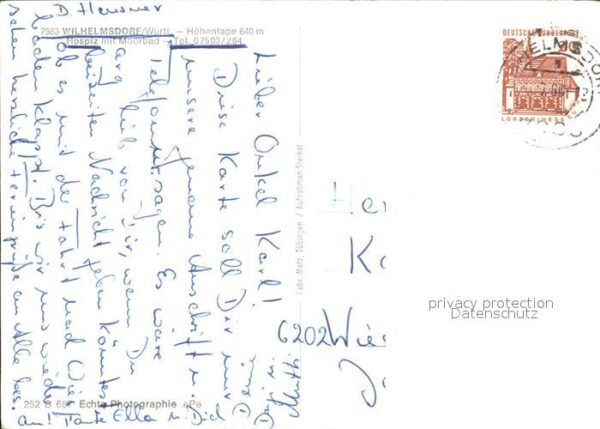 7983 WILHELMSDORF/Württ. – Höhenlage 640 m
Hospiz mit Moorbad – Tel. 07503/264
Lieber Onkel Karl!
Diese Karte soll Dir nur
unsere genaue Anschrift u.
Telefon sagen. Es wäre
arg lieb von Dir, wenn Du
beizeiten Nachricht geben könntest
ob es mit der Fahrt nach Wies
baden klappt. Bis wir uns wieder
sehen herzliche Feriengrüße an Alle bes.
an! Tante Ella u. Dich
D.
Gebr. Metz, Tübingen / Aufnahmen Sterkel
252 B 681 Echte Photographie ePe
DEUTSCHE BUNDESPOST
LORSCH/HESSEN
He
K
6202 Wie
privacy protection
Datenschutz